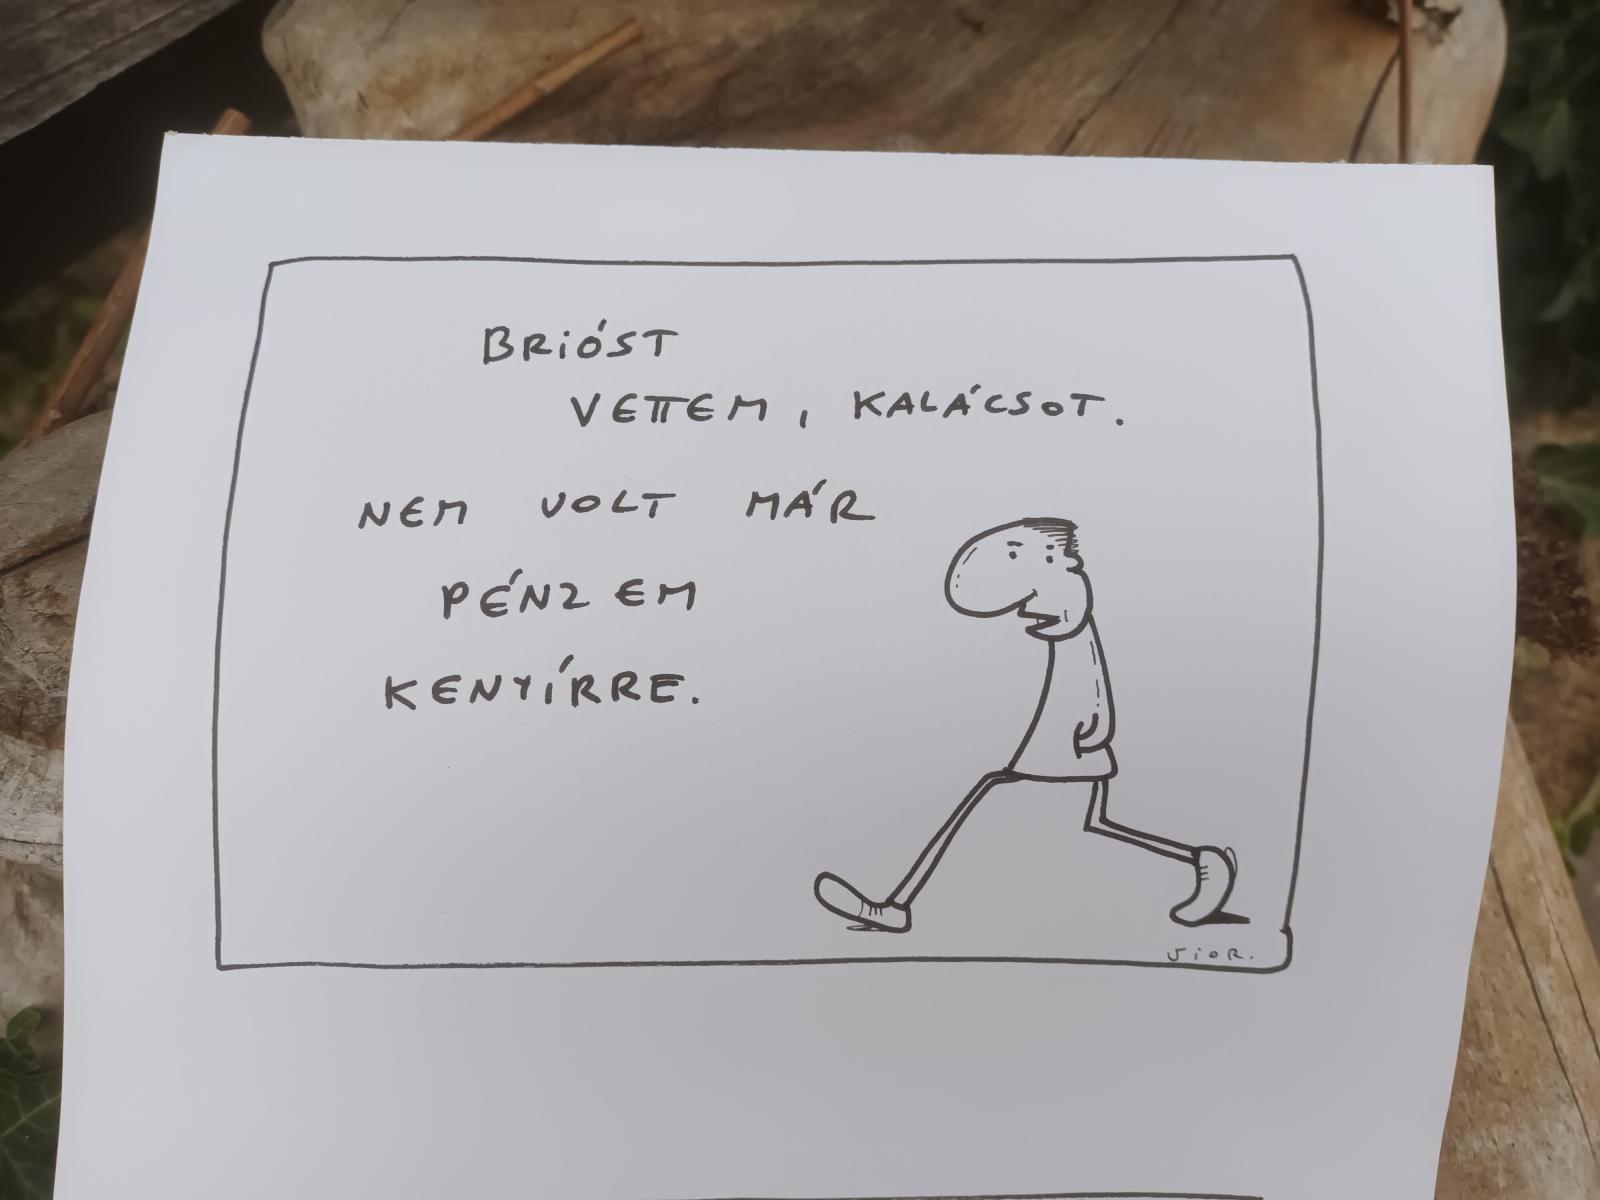 BRIÓST
VETTEM, KALÁCSOT.
NEM VOLT MÁR
PÉNZEM
KENYÍRRE.
SiOR.